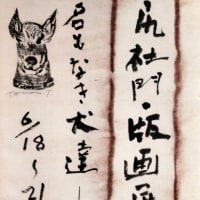 尻杜門・版画展
名もなき犬達
6/18～21